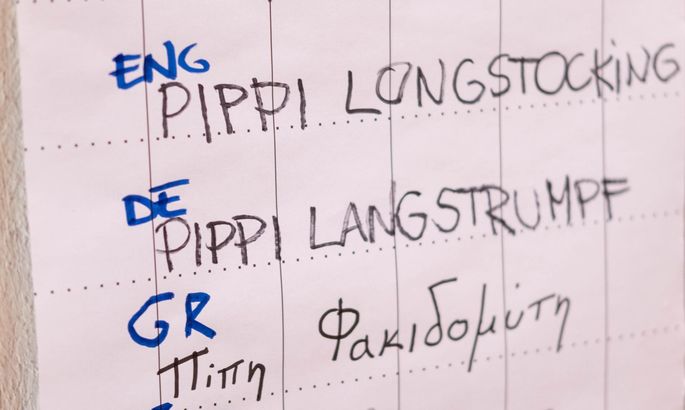 ENG
PIPPI LONGSTOCKiNG
DE
PIPPI LANGSTRUMPF
GR
Πιπη Φακιδομύτη